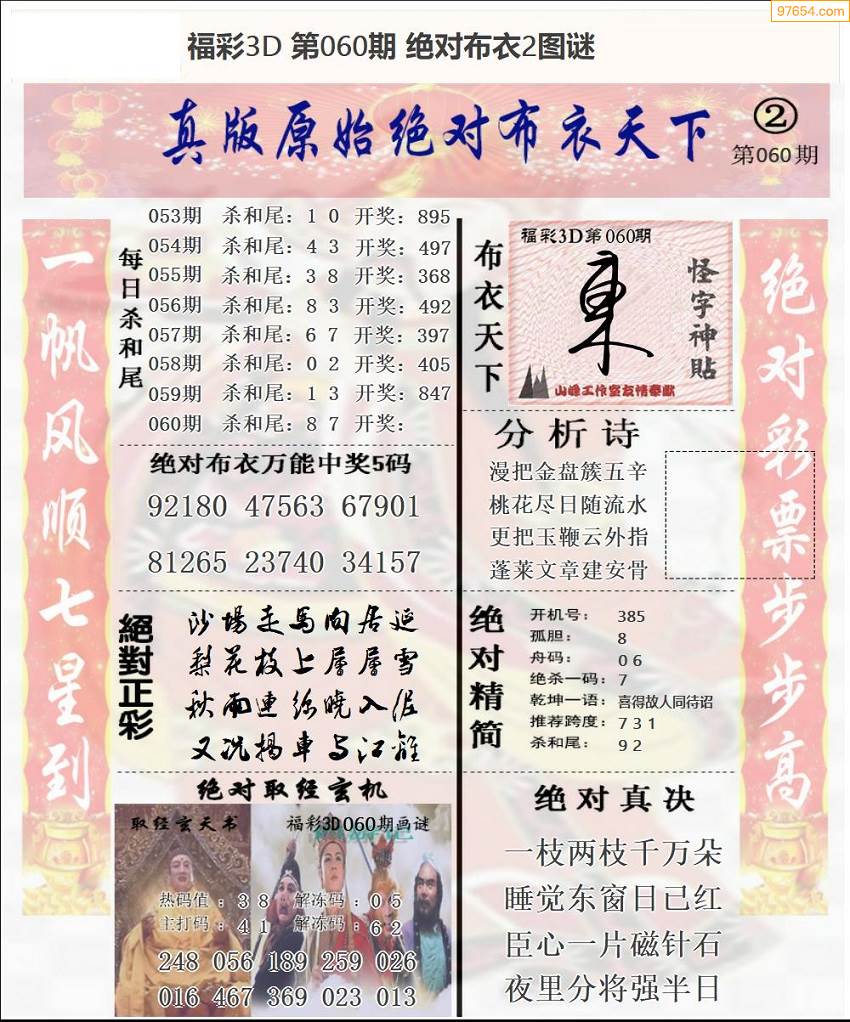 97654.com
福彩3D 第060期 绝对布衣2图谜
真版原始绝对布衣天下
②
第060期
一帆风顺七星到
每日杀和尾
053期 杀和尾: 1 0 开奖: 895
054期 杀和尾: 4 3 开奖: 497
055期 杀和尾: 3 8 开奖: 368
056期 杀和尾: 8 3 开奖: 492
057期 杀和尾: 6 7 开奖: 397
058期 杀和尾: 0 2 开奖: 405
059期 杀和尾: 1 3 开奖: 847
060期 杀和尾: 8 7 开奖:
绝对布衣万能中奖5码
92180 47563 67901
81265 23740 34157
絕對正彩
沙場走馬向居延
梨花枝上層層雪
秋雨連綿曉入泥
又况楊車与江離
绝对取经玄机
取经玄天书
福彩3D060期画谜
热码值 : 3 8 解冻码 : 0 5
主打码 : 4 1 解冻码 : 6 2
248 056 189 259 026
016 467 369 023 013
布衣天下
福彩3D第060期
怪字神贴
山峰工作室友情奉献
分析诗
漫把金盘簇五辛
桃花尽日随流水
更把玉鞭云外指
蓬莱文章建安骨
绝对精简
开机号: 385
孤胆: 8
舟码: 0 6
绝杀一码: 7
乾坤一语: 喜得故人同待诏
推荐跨度: 7 3 1
杀和尾: 9 2
绝对真决
一枝两枝千万朵
睡觉东窗日已红
臣心一片磁针石
夜里分将强半日
绝对彩票步步高